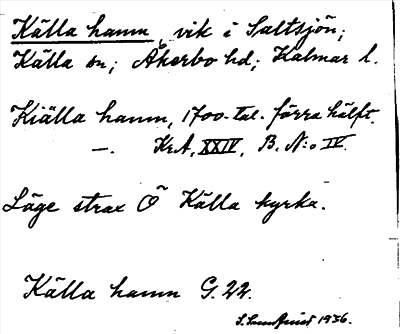 Källa hamn, vik i Saltsjön;
Källa sn; Åkerbo hd; Kalmar l.
Kiälla hamn, 1700-tal. förra hälft.
—. KrA, XXIV, B. N:o IV.
Läge strax Ö Källa kyrka.
Källa hamn G. 22.
1936.